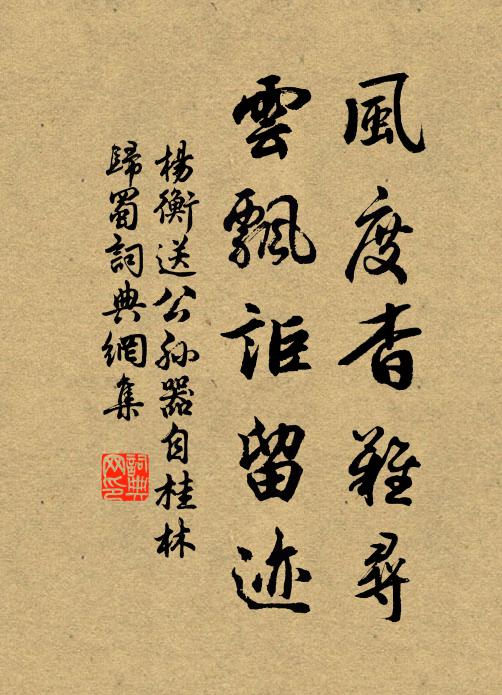 風度杳難尋
雲飄詎留迹
楊衡送公孫器自桂林
歸蜀詞典網集
詞典網印